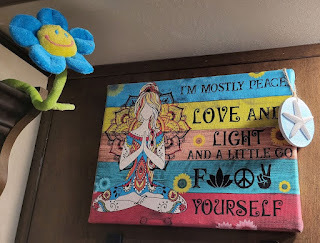 I'M MOSTLY PEACE
LOVE AND
LIGHT
AND A LITTLE GO
F☮✌
YOURSELF